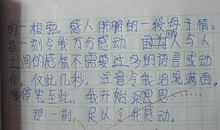 的一根弦，感人肺腑的一段母子情。
那一刻令我万分感动，因为人与人
之间的感情不需要过多的语言或动
作，仅此几秒，笔会令我泪流满面。
停笔至此，我开始
那一刻，足以令我感动。